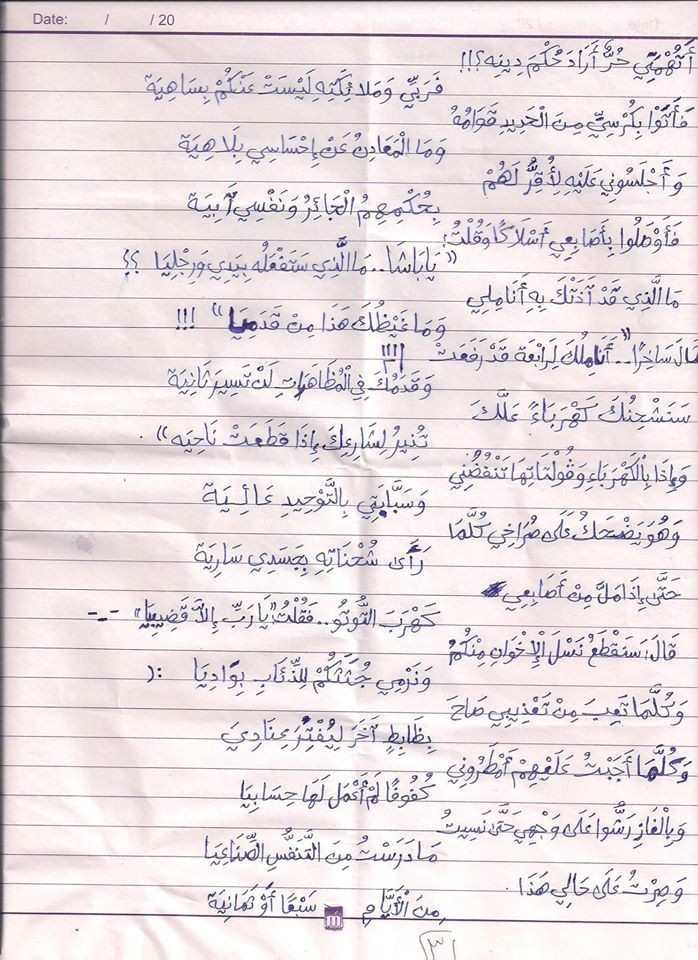 Date: / / 20
أَتُهْمَتِي حُرٌّ أَرَادَ حُكْمَ دِينِهِ؟!!
فَرَبِّي وَمَلَائِكَتِهِ لَيْسَتْ عَنْكُمْ بِسَاهِيَة
فَأَتَوْا بِكُرْسِيٍّ مِنَ الْحَدِيدِ قَوَامُهُ
وَمَا الْمَعَادِنُ عَنْ إِحْسَاسِي بِلَاهِيَة
وَأَجْلَسُونِي عَلَيْهِ لِأُقِرَّ لَهُمْ
بِحُكْمِهِمُ الْجَائِرُ وَنَفْسِي أَبِيَة
فَأَوْصَلُوا بِأَصَابِعِي أَسْلَاكًا وَقُلْتُ:
"يَابَاشَا.. مَا الَّذِي سَتَفْعَلُه بِيَدِي وَرِجْلِيَا ؟؟
مَا الَّذِي قَدْ آذَتْكَ بِهِ أَنَامِلِي
وَمَا غَيْظُكَ هَذَا مِنْ قَدَمِيَا" !!!
قَالَ سَاخِرًا "..أَنَامِلُكَ لِرَابْعَة قَدْ رَفَعَتْ !!!!
وَقَدَمُكَ فِي الْمُظَاهَرَاتِ لَنْ تَسِيرَ ثَانِيَة
سَنَشْحِنُكَ كَهْرَبَاءً عَلَّكَ
تُنِيرُ لِشَارِعِكَ إِذَا قَطَعَتْ نَاحِيَه".
وَإِذَا بِالْكَهْرَبَاءِ وَفُولْتَاتِهَا تَنْفُضُنِي
وَسَبَّابَتِي بِالتَّوْحِيدِ عَالِيَة
وَهُوَ يَضْحَكُ عَلَى صُرَاخِي كُلَّمَا
رَأَى شُحْنَاتِهِ بِجَسَدِي سَارِيَة
حَتَّى إِذَا مَلَّ مِنْ أَصَابِعِي
كَهْرَبَ التُّوتُو.. فَقُلْتُ: "يَارَبِّ إِلَّا قَضِيبِيَا" -_-
قَالَ: سَنَقْطَعُ نَسْلَ الْإِخْوَانِ مِنْكُمُ
وَنَرْمِي جُثَثَكُمْ لِلذِّئَابِ بِوَادِيَا :(
وَكُلَّمَا تَعِبَ مِنْ تَعْذِيبِي صَاحَ
بِظَابِطٍ آخَرَ لِيُفْتِرَ عِنَادِيَ
وَكُلَّمَا أَجَبْتُ عَلَيْهِمْ أَمْطَرُونِي
كُفُوفًا لَمْ أَعْمَل لَهَا حِسَابِيَا
وَبِالْغَازِ رَشُّوا عَلَى وَجْهِي حَتَّى نَسِيتُ
مَا دَرَسْتُ مِنَ التَّنَفُّسِ الصِّنَاعِيَا
وَصِرْتُ عَلَى حَالِي هَذَا.
مِنَ الْأَيَّامِ سَبْعًا أَوْ ثَمَانِيَة
٣